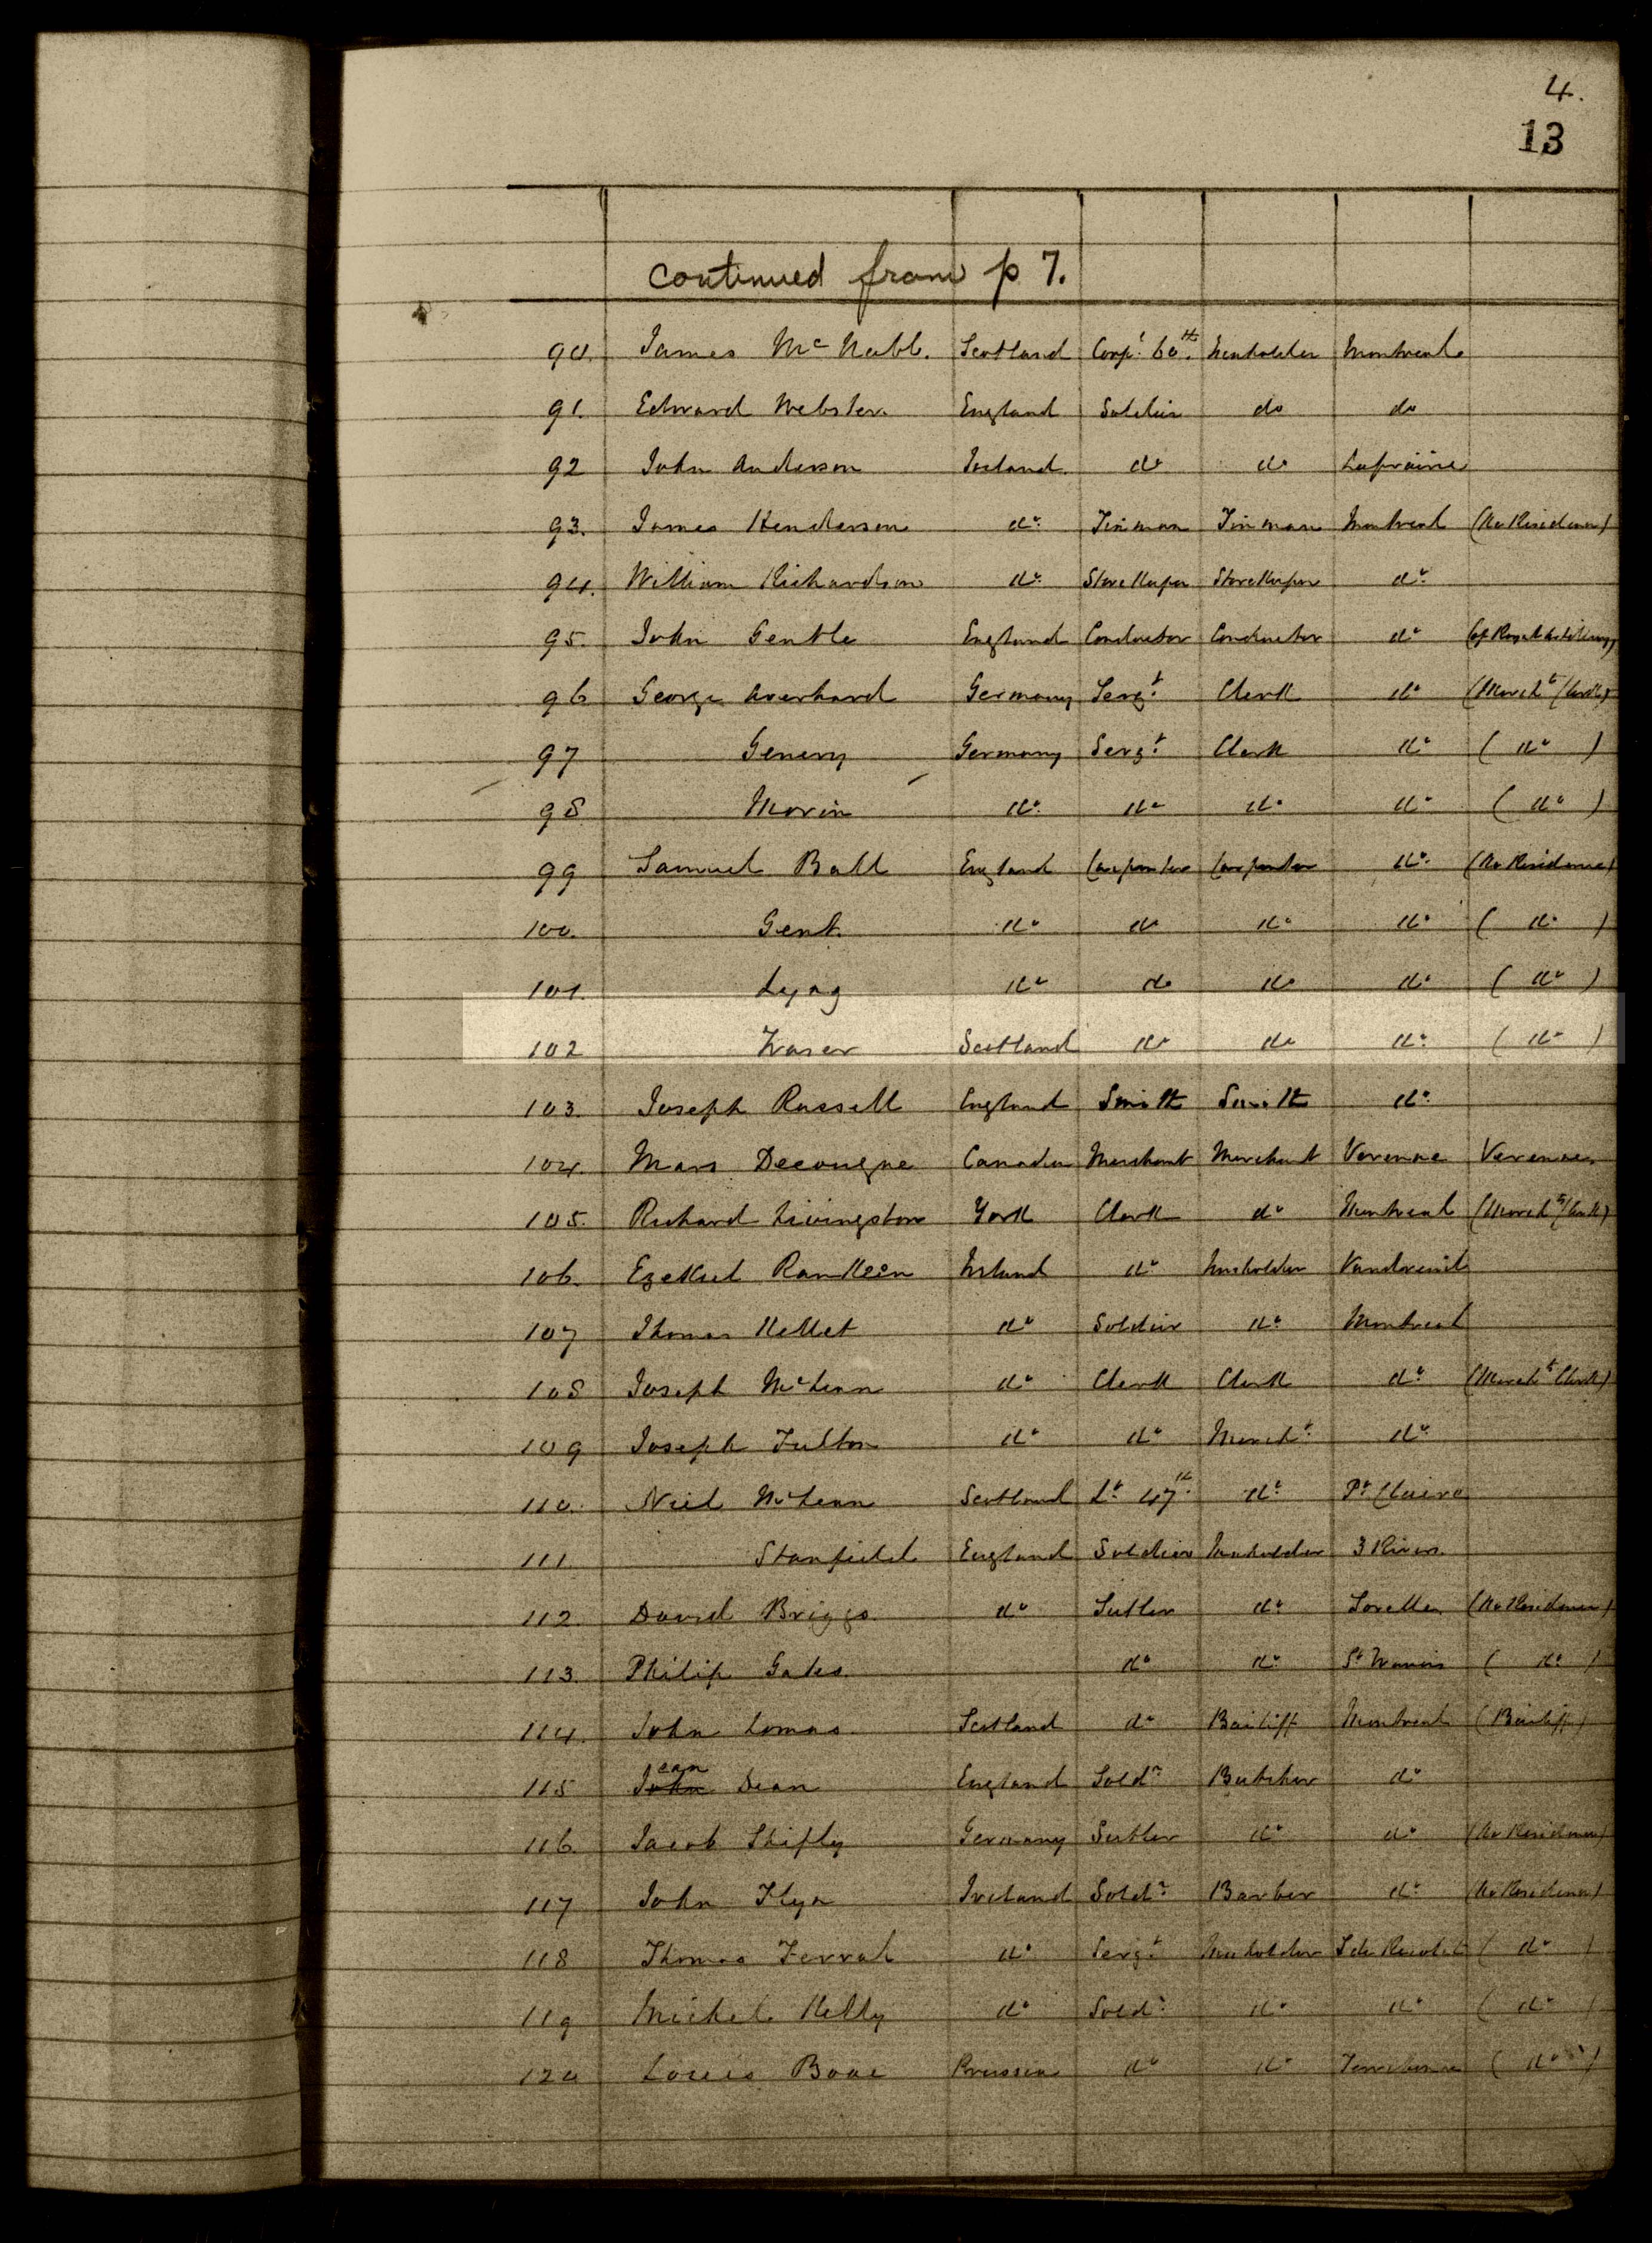 4.
13
continued from p 7.
90. James Mc Nabb. Scotland Corpl. 60th. Innholder Montreal
91. Edward Webster England Soldier do do
92 John Anderson Ireland do do Laprairie
93. James Henderson do Tinman Tinman Montreal (No Residence)
94. William Richardson do StoreKeeper StoreKeeper do
95. John Gentle England Conductor Conductor do (of Royal Artillery)
96 George Averhard Germany Sergt. Clerk do (Mercht Clerk)
97 Genevy Germany Sergt. Clerk do ( do )
98 Morin do do do do ( do )
99 Samuel Ball England Carpenter Carpenter do (No Residence)
100. Gent do do do do ( do )
101. do do do do ( do )
102 Fraser Scotland do do do ( do )
103. Joseph Russell England Smith Smith do
104. Mars Decougne Canadien Merchant Merchant Varenne Varennes
105. Richard Livingston York Clerk do Montreal (Mercht Clerk)
106. Ezekiel Ireland do Innholder Vaudreuil
107 Thomas Kellet do Soldier do Montreal
108 Joseph McLean do Clerk Clerk do (Mercht Clerk)
109 Joseph Fulton do do Mercht. do
110. Neil McLean Scotland Lt 47th. do Pt Claire
111. Stanfield England Soldier Innholder 3 Rivers
112. David Briggs do Sutler do (No Residence)
113. Philip Gates do do ( do )
114. John Lomas Scotland do Bailiff Montreal (Bailiff)
115 John ean Dean England Soldr. Butcher do
116. Jacob Shifly Germany Sutler do do (No Residence)
117 John Flyn Ireland Soldr. Barber do (No Residence)
118 Thomas Ferral do Sergt. Innholder ( do )
119 Michel Kelly do Soldr. do do ( do )
120 Louis Prussia do do Terrebonne ( do )